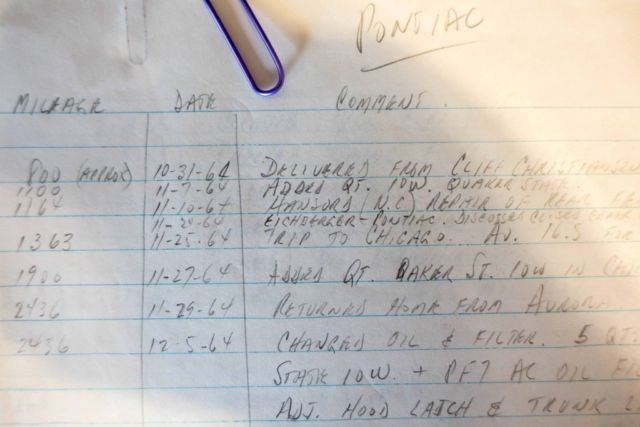 PONTIAC
MILEAGE DATE COMMENT.
800 (APPROX) 10-31-64 DELIVERED FROM CLIFF CHRISTIANSEN
1100 11-7-64 ADDED QT. 10W. QUAKER STATE.
1164 11-10-64 (N.C.) REPAIR OF REAR
11-24-64 EICHBERGER-PONTIAC.
1363 11-25-64 TRIP TO CHICAGO. AV. 16.5 FOR
1900 11-27-64 ADDED QT. QAKER ST. 10W IN
2436 11-29-64 RETURNED HOME FROM AURORA
2436 12-5-64 CHANGED OIL & FILTER. 5 QT.
STATE 10W. + PF7 AC OIL
ADJ. HOOD LATCH & TRUNK